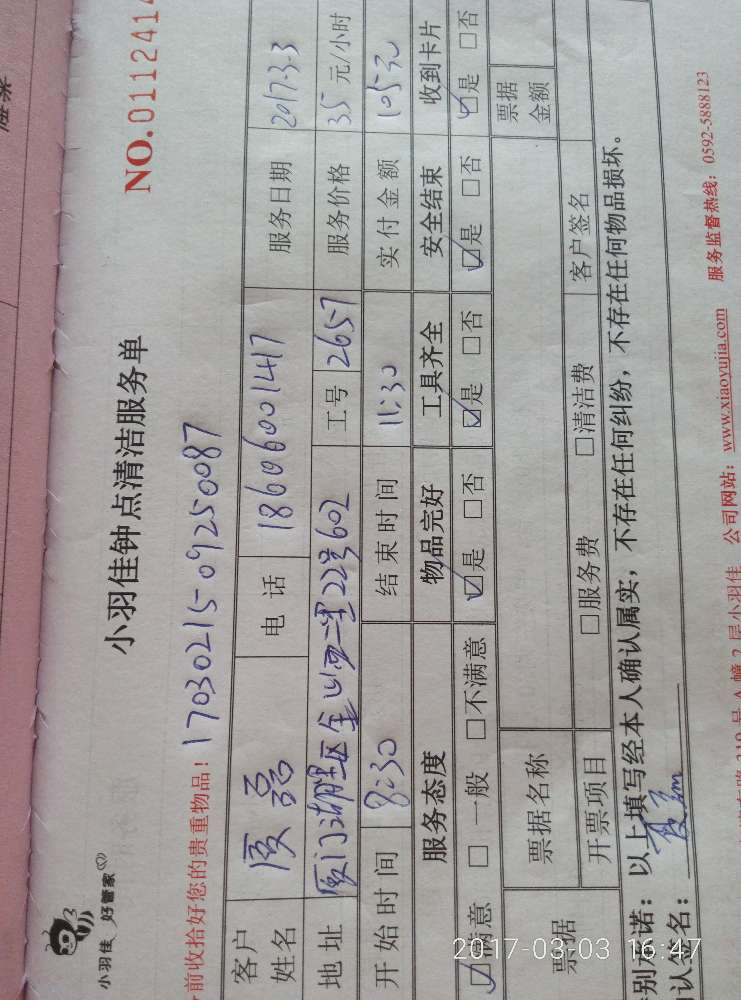 小羽佳 好管家
小羽佳钟点清洁服务单
NO.0112414
前收拾好您的贵重物品! 1703021509250087
客户姓名 电话 18606001417 服务日期 2017-3-3
地址 厦门湖里区金山西二里22号602 工号 2657 服务价格 35 元/小时
开始时间 8:30 结束时间 11:30 实付金额 105元
服务态度 物品完好 工具齐全 安全结束 收到卡片
☑满意 □一般 □不满意 ☑是 □否 ☑是 □否 ☑是 □否 ☑是 □否
票据 票据名称 票据金额
开票项目 □服务费 □清洁费 客户签名
别承诺：以上填写经本人确认属实，不存在任何纠纷，不存在任何物品损坏。
认签名：
2层小羽佳 公司网站：www.xiaoyujia.com 服务监督热线：0592-5888123
2017-03-03 16:47